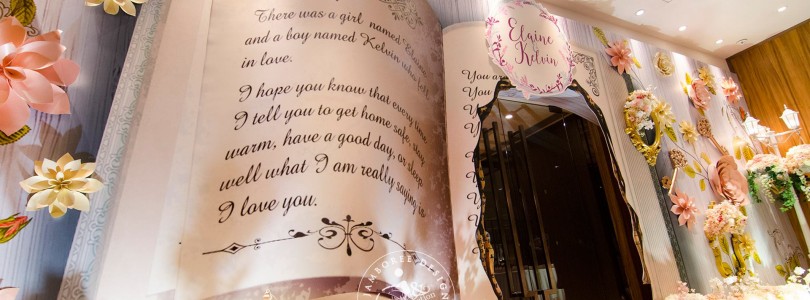 There was a girl named Elaine
and a boy named Kelvin who fell
in love.
I hope you know that every time
I tell you to get home safe, stay
warm, have a good day, or sleep
well what I am really saying is
I love you.
You are
You
You
Elaine
&
Kelvin
AMBOREE DESIGN